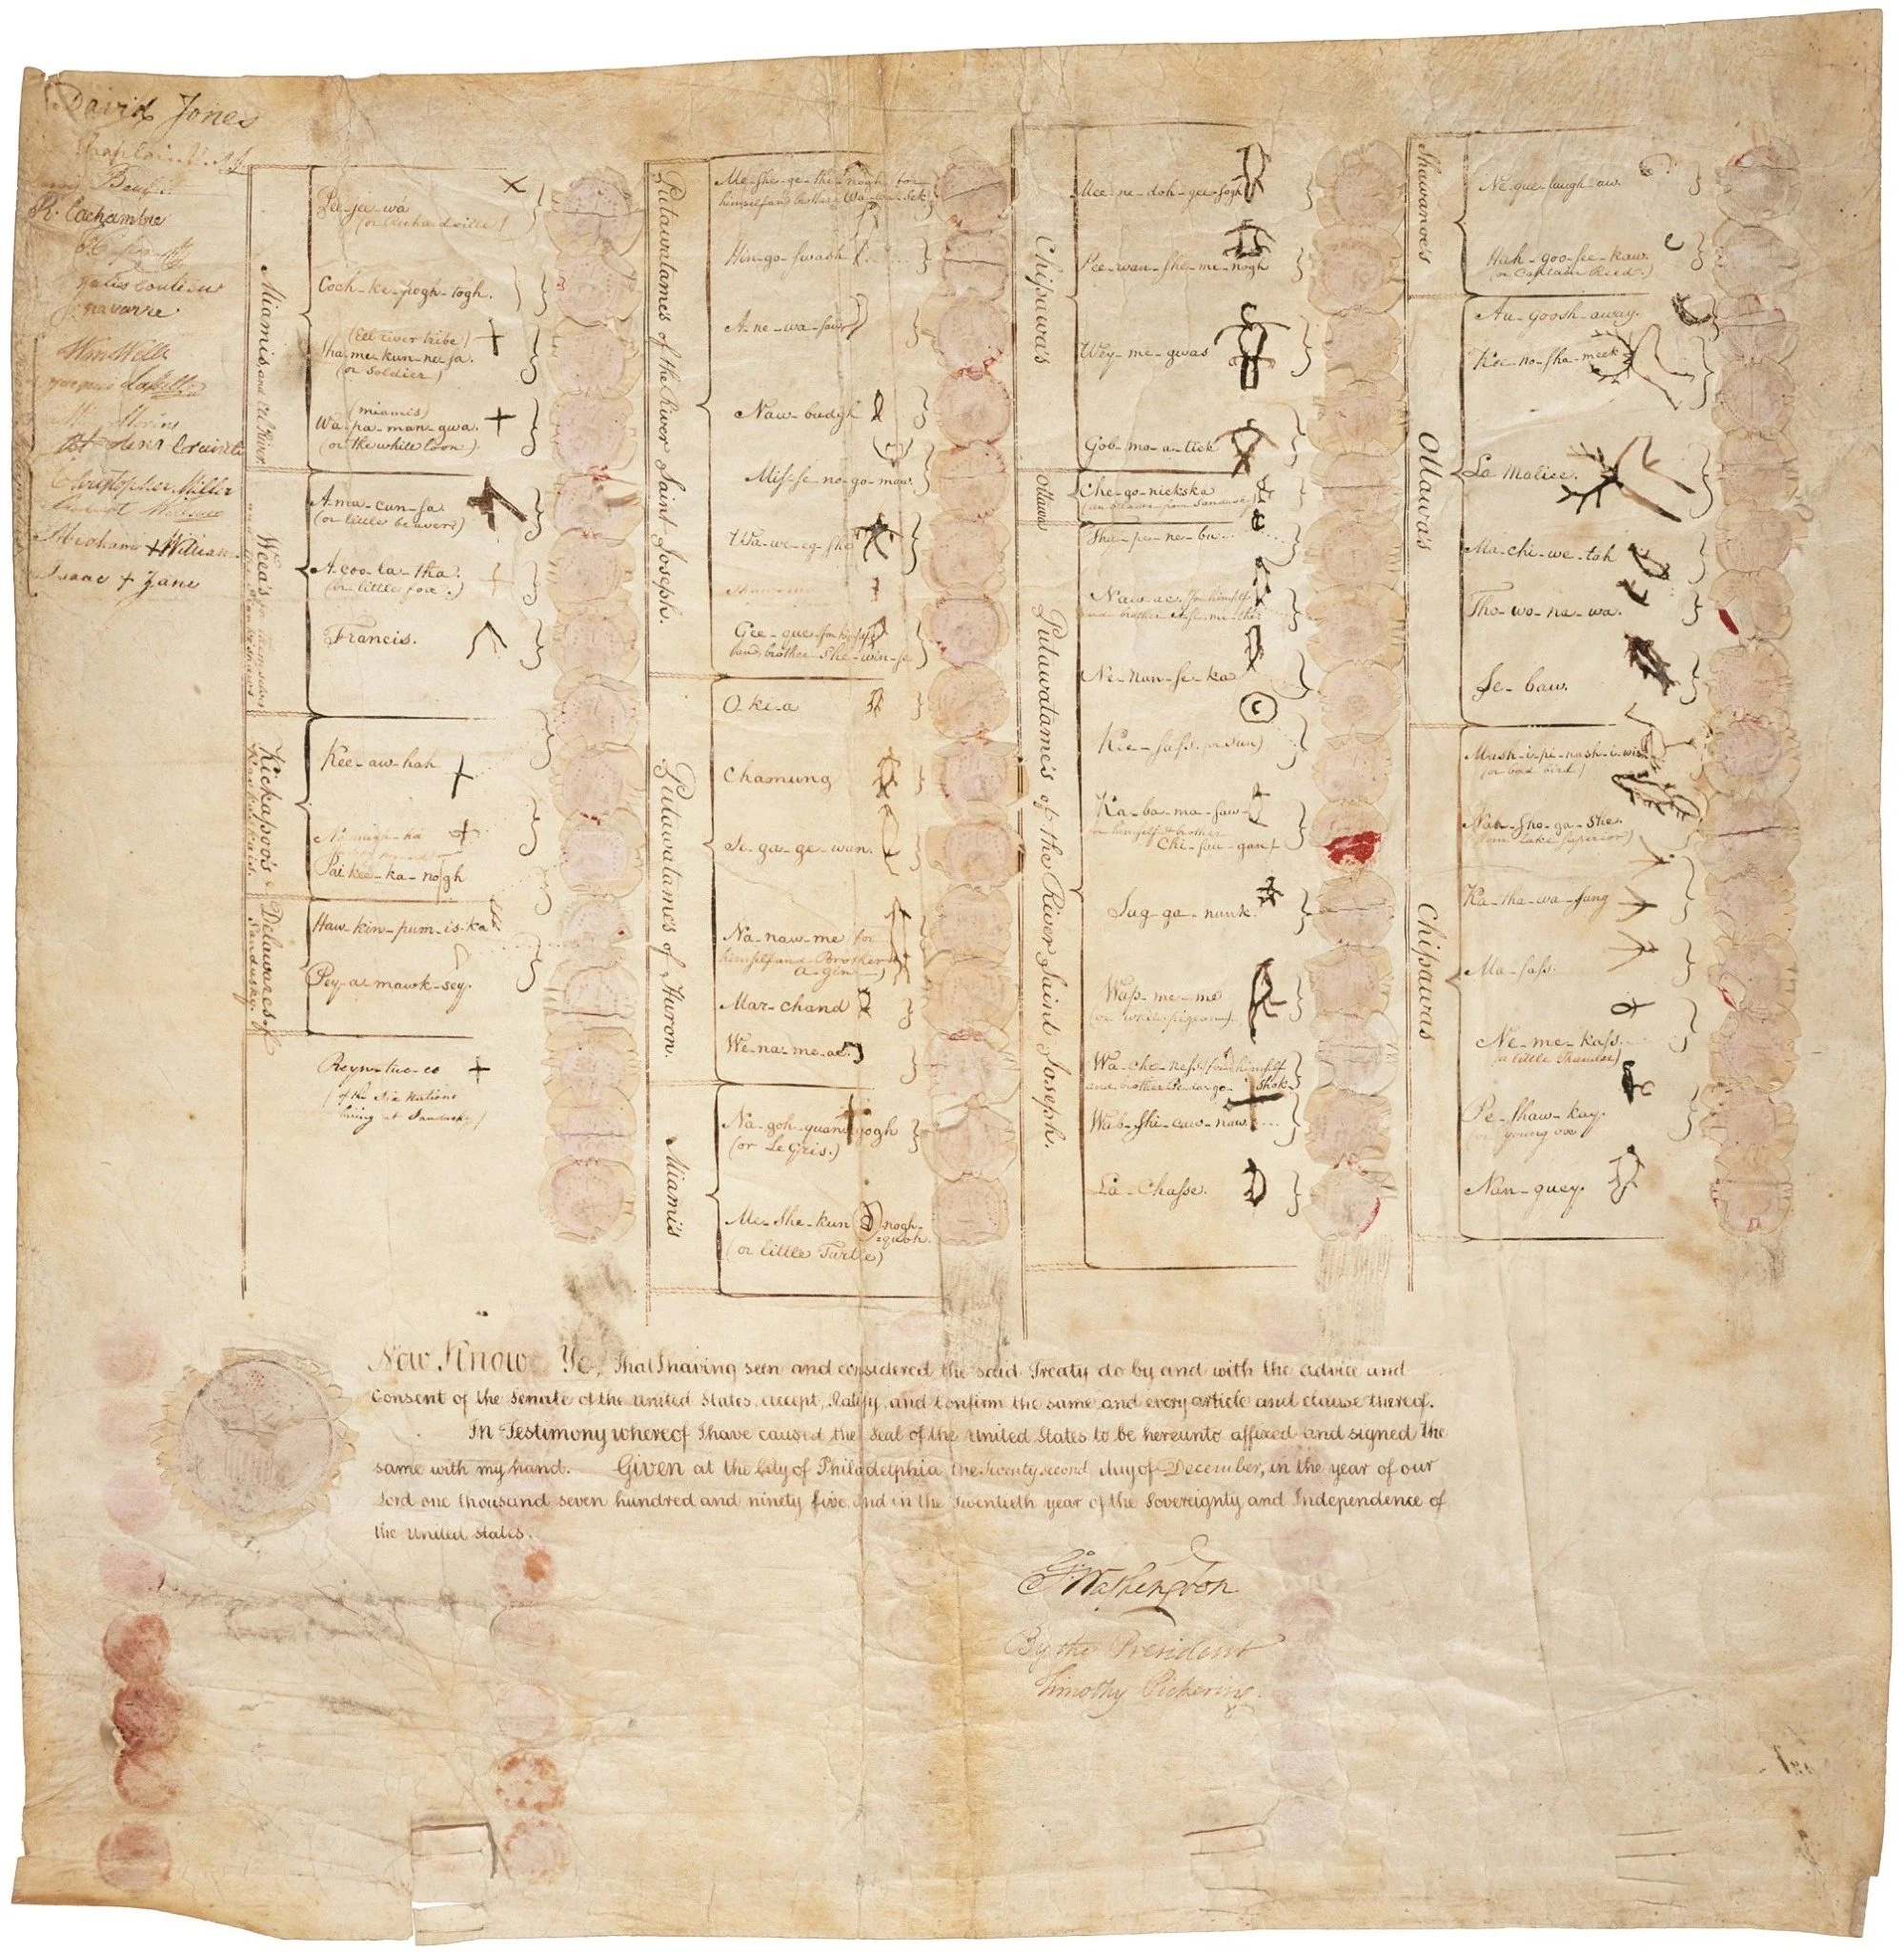 David Jones
R. Lachambre
navarre
Wm Wells
Christopher Miller
Abraham + William
Isaac + Zane
Miamis, and Eel River
Pee-jee-wa
(or Richardville)
Coch-ke-pogh-togh.
(Eel river tribe)
Sha-me-kun-ne-sa.
(or Soldier)
(miamis)
Wa-pa-man-gwa.
(or the white loon).
Weea's
A-ma-cun-sa.
(or little beaver)
A-coo-la-tha.
(or little fox.)
Francis.
Kickapoo's &
Kaskaskias.
Kee-aw-hah
Pai kee-ka-nogh
Delaware's of
Sandusky.
Haw-kin-pum-is-ka
Pey-a-mawk-sey.
Reyn-tue-co
(of the Six Nations
living at Sandusky)
Putawatame's of the River Saint Joseph.
Me-she-ge-the-nogh for
himself and brother Wa-wa-sek
Hin-go-swash
A-ne-wa-saw
Naw-budgh
Mis-se-no-go-maw.
Wa-we-eg-she
Gee-que for himself
and brother She-win-se
Putawatames of Huron.
O-ki-a
Chamung
Se-ga-ge-wan.
Na-naw-me for
himself and Brother
A-gin
Mar-chand
We-na-me-ac.
Miami's
Na-goh-quan-gogh
(or Le Gris.)
Me-She-kun-nogh-
quoh.
(or little Turtle)
Chipawa's
Mee-ne-doh-gee-sogh
Pee-wan-she-me-nogh
Wey-me-gwas
Gob-mo-a-tick
Ottawa
Che-go-nickska
(an Ottawa from Sandusky)
Putawatame's of the River Saint Joseph.
The-pe-ne-bu...
Naw-ac for himself
and brother
Ne-nan-se-ka
Kee-sass or Sun)
Ka-ba-ma-saw
himself & brother
Chi-sau-gan
Sug-ga-nunk.
Wap-me-me
(or white pigeon)
Wa-che-ness for himself
and brother Pe-da-go-shok
Wab-shi-caw-naw...
La-Chasse.
Shawanoe's
Ne-que-taugh-aw.
Hah-goo-see-kaw.
(or Captain Reed.)
Ottawa's
Au-goosh-away.
Kee-no-sha-meek
La Malice.
Ma-chi-we-tah
Tho-wo-na-wa.
Se-baw.
Chipawas
Mash-i-pi-nash-i-wish
(or bad bird)
Nah-sho-ga-she.
(from Lake Superior)
Ka-tha-wa-sung
Ma-sass.
Ne-me-kass.
(or little Thunder)
Pe-shaw-kay.
(or young ox)
Nan-guey.
Now Know Ye, That I having seen and considered the said Treaty do by and with the advice and
Consent of the Senate of the United States, accept, Ratify, and Confirm the same and every article and clause thereof.
In Testimony whereof I have caused the Seal of the United States to be hereunto affixed and signed the
same with my hand. Given at the City of Philadelphia, the Twenty second day of December, in the year of our
Lord one thousand seven hundred and ninety five, and in the Twentieth year of the Sovereignty and Independence of
the United States.
G. Washington
By the President
Timothy Pickering.